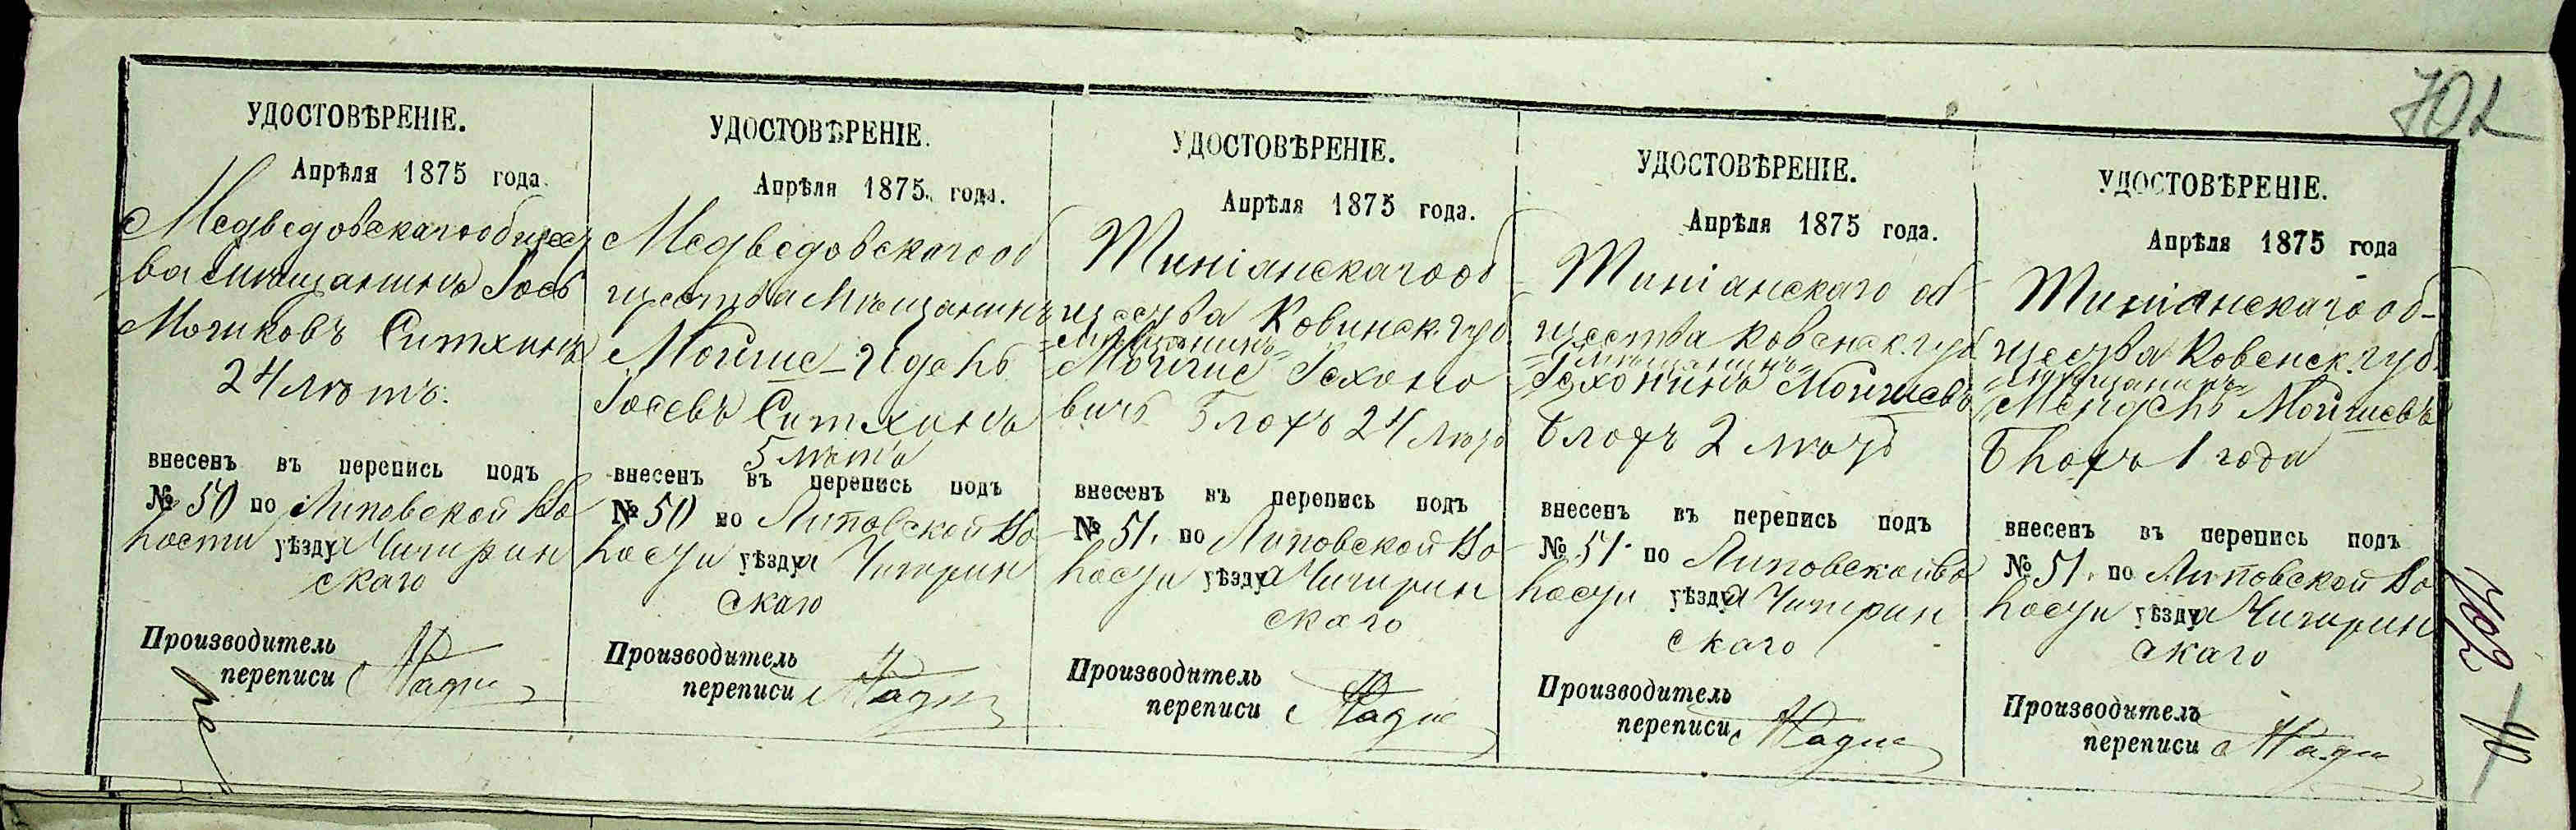 702
УДОСТОВѢРЕНІЕ.
Апрѣля 1875 года.
Медведовскаго общест
ва мѣщанинъ Іось
Мошковъ Ситхинъ
24 лѣтъ.
внесенъ въ перепись подъ
№ 50 по Липовской Во
лости уѣзда Чигирин
скаго
Производитель
переписи
УДОСТОВѢРЕНІЕ.
Апрѣля 1875 года.
Медведовскаго об
щества Мѣщанинъ
Мойше-Идель
Іосевъ Ситхинъ
5 лѣтъ
внесенъ въ перепись подъ
№ 50 по Липовской Во
лости уѣзда Чигирин
скаго
Производитель
переписи
УДОСТОВѢРЕНІЕ.
Апрѣля 1875 года.
Шиніанскаго об
щества Ковинск. губ.
мѣщанинъ
Мойше Гохоно
вичъ Блохъ 24 лѣтъ
внесенъ въ перепись подъ
№ 51. по Липовской Во
лости уѣзда Чигирин
скаго
Производитель
переписи
УДОСТОВѢРЕНІЕ.
Апрѣля 1875 года.
Шиніанскаго об
щества Ковенск. губ.
мѣщанинъ
Мойшевъ
Блохъ 2 лѣтъ
внесенъ въ перепись подъ
№ 51. по Липовской Во
лости уѣзда Чигирин
скаго
Производитель
переписи
УДОСТОВѢРЕНІЕ.
Апрѣля 1875 года
Шиніанскаго об-
щества Ковенск. губ.
мѣщанинъ
Мендель Мойшевъ
Блохъ 1 года
внесенъ въ перепись подъ
№ 51. по Липовской Во
лости уѣзда Чигирин
скаго
Производитель
переписи
702